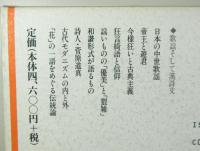 ◆歌謡そして漢詩文
日本の中世歌謡
帝王と遊君
今様狂いと古典主義
狂言綺語と信仰
謡いものの「優美」と「卑雑」
和讃形式が語るもの
詩人・菅原道真
古代モダニズムの内と外
「花」の一語をめぐる伝統論
定価(本体四、六〇〇円+税)